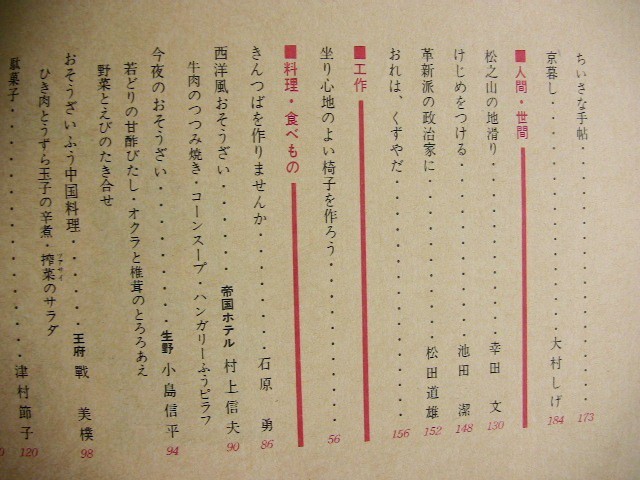 ちいさな手帖・・・・・・・・・・・・・・173
京暮し・・・・・・・・・・・大村しげ 184
■人間・世間
松之山の地滑り・・・・・・・・幸田 文 130
けじめをつける・・・・・・・・池田 潔 148
革新派の政治家に・・・・・・・松田道雄 152
おれは、くずやだ・・・・・・・・・・・156
■工作
坐り心地のよい椅子を作ろう・・・・・・56
■料理・食べもの
きんつばを作りませんか・・・・石原 勇 86
西洋風おそうざい・・・・・帝国ホテル 村上信夫 90
牛肉のつつみ焼き・コーンスープ・ハンガリーふうピラフ
今夜のおそうざい・・・・・・・生野 小島信平 94
若どりの甘酢びたし・オクラと椎茸のとろろあえ
野菜とえびのたき合せ
おそうざいふう中国料理・・・・王府 戰 美樸 98
ひき肉とうずら玉子の辛煮・搾菜のサラダ
ザアサイ
駄菓子・・・・・・・・・・・・津村節子 120